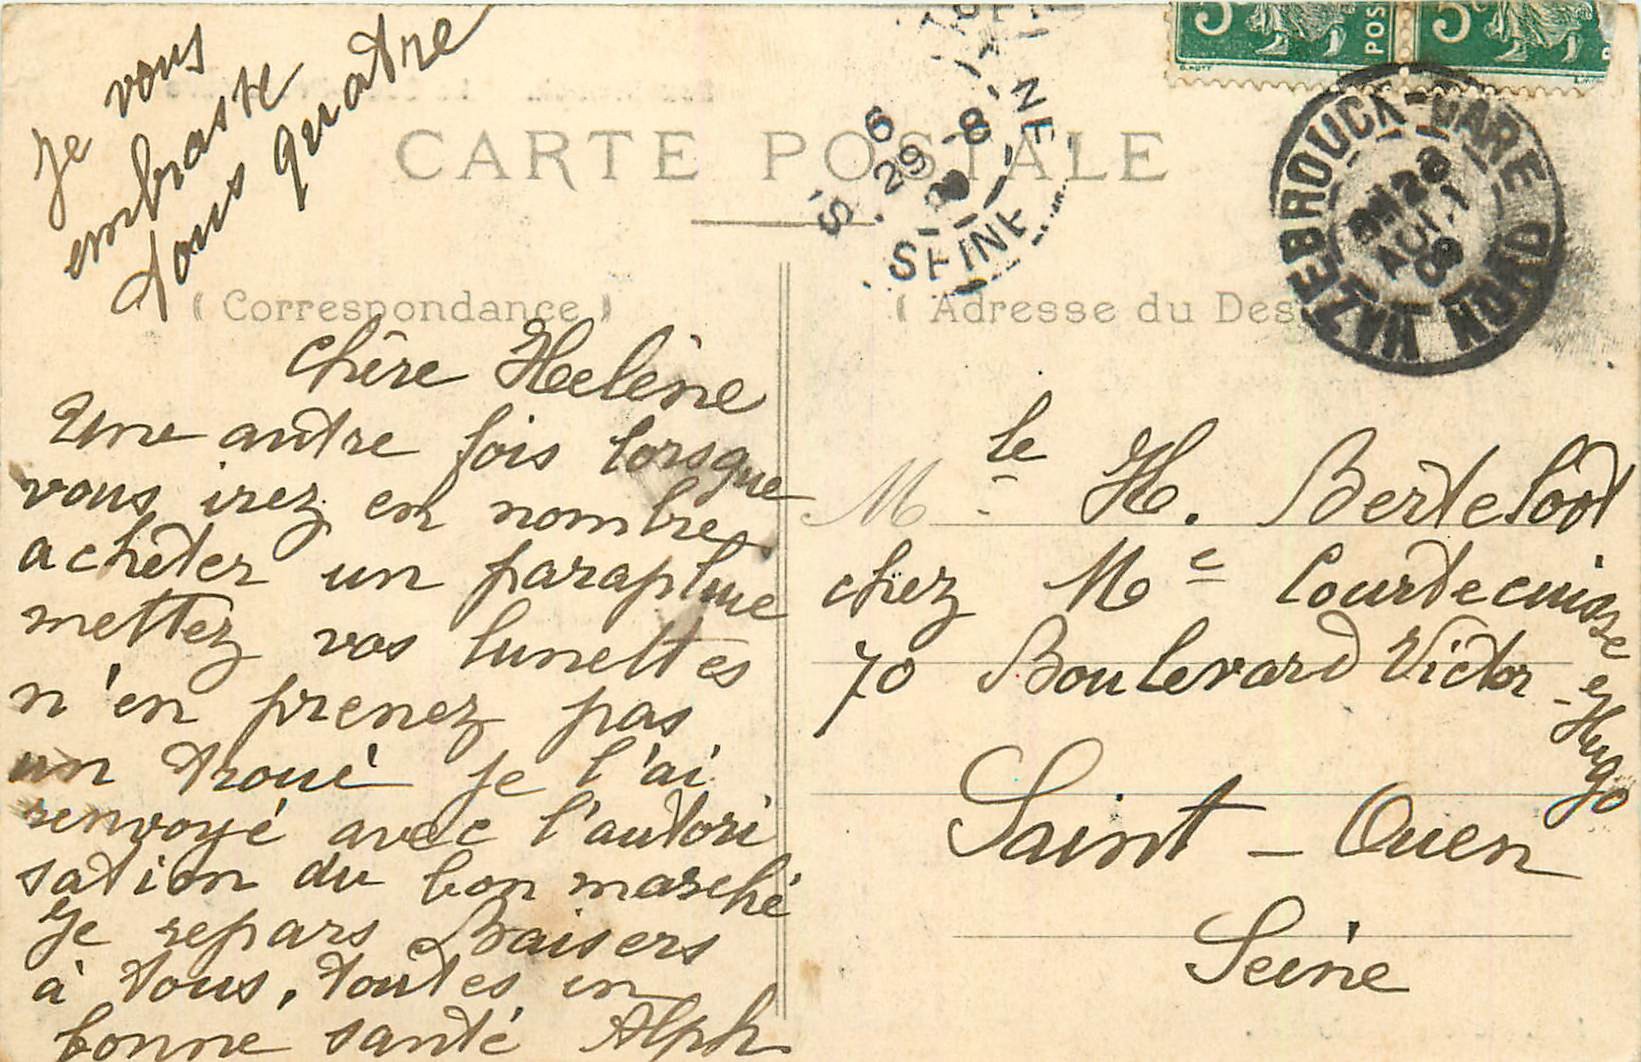 Je vous
embrasse
tous quatre
CARTE POSTALE
( Correspondance )
( Adresse du Des
5
POS
5
6
29 - 8
SEINE
HAZEBROUCK-GARE
28
AOUT
09
NORD
Chère Helène
Une autre fois lorsque
vous irez en nombre
acheter un parapluie
mettez vos lunettes
n'en prenez pas
un troué je l'ai
renvoyé avec l'autori
sation du bon marché
Je repars Baisers
à tous, toutes en
bonne santé Alph
Mlle H. Berteloot
chez Me Courtecuisse
70 Boulevard Victor-Hugo
Saint-Ouen
Seine